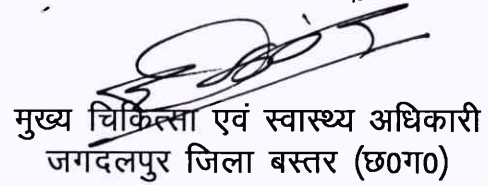 मुख्य चिकित्सा एवं स्वास्थ्य अधिकारी
जगदलपुर जिला बस्तर (छ0ग0)